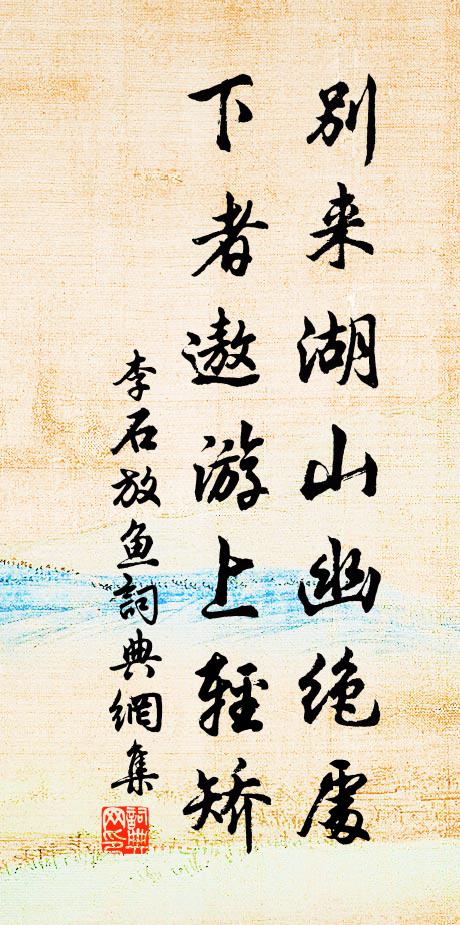 别来湖山幽绝處
下者遨游上輕矯
李石放鱼詞典網集
詞典网印